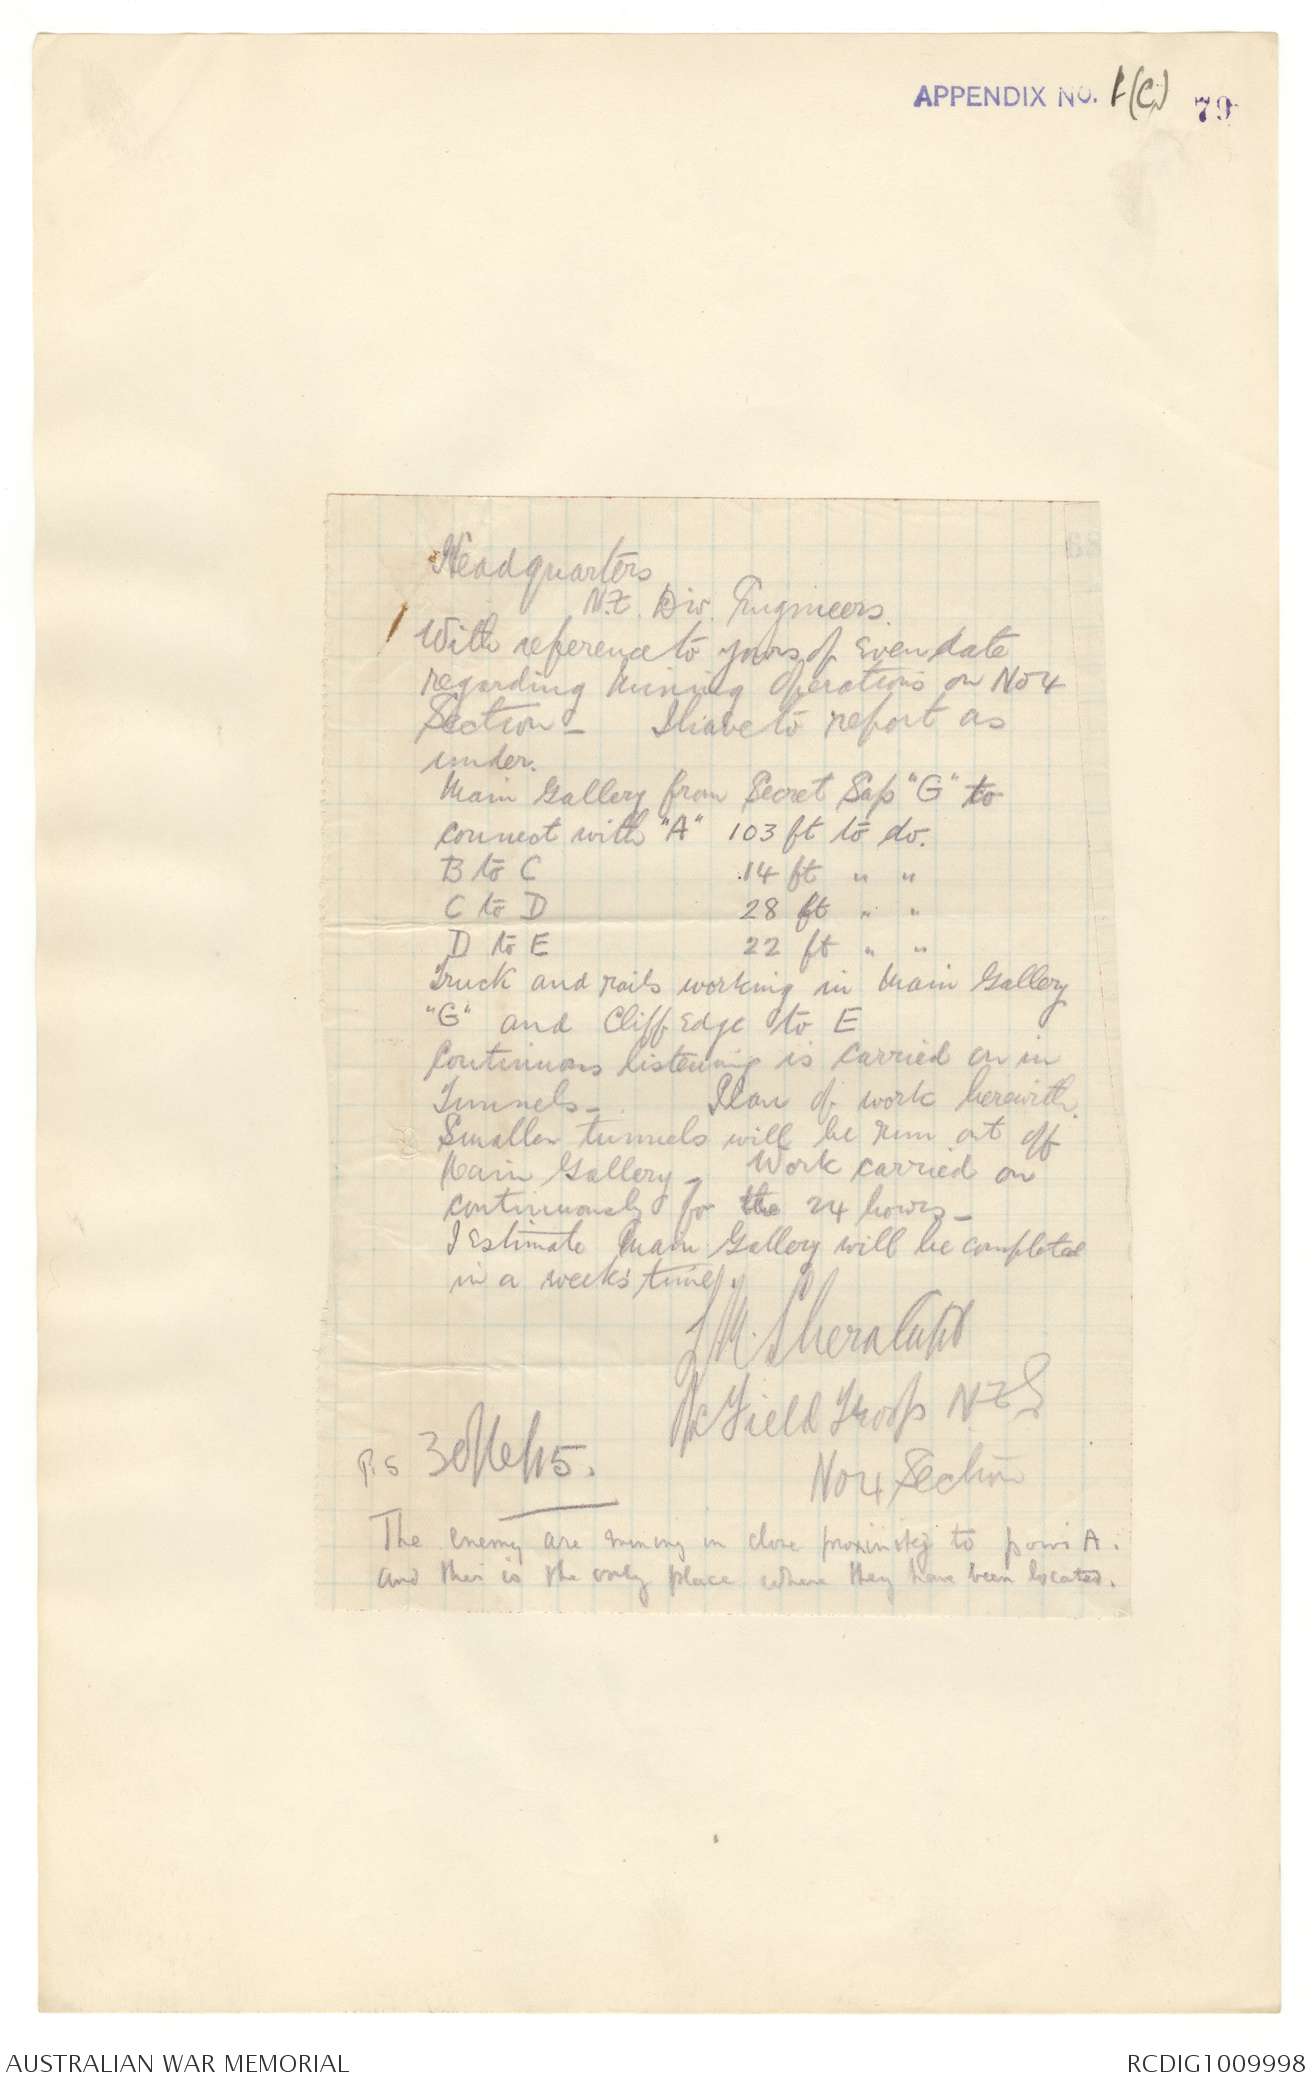 APPENDIX NO. 1(C) 79
Headquarters
N.Z. Div. Engineers.
With reference to yours of even date
regarding mining operations on No 4
Section – I have to report as
under.
Main Gallery from Secret Sap "G" to
connect with "A" 103 ft to do.
B to C 14 ft " "
C to D 28 ft " "
D to E 22 ft " "
Truck and rails working in Main Gallery
"G" and Cliff Edge to E
Continuous listening is carried on in
Tunnels – Plan of work herewith.
Smaller tunnels will be run out off
Main Gallery – Work carried on
continuously for the 24 hours –
I estimate Main Gallery will be completed
in a week's time.
Shera Capt
OC Field Troop N.Z.E
No 4 Section
P.S 30/Sep/15.
The enemy are mining in close proximity to point A.
and this is the only place where they have been located.
AUSTRALIAN WAR MEMORIAL RCDIG1009998